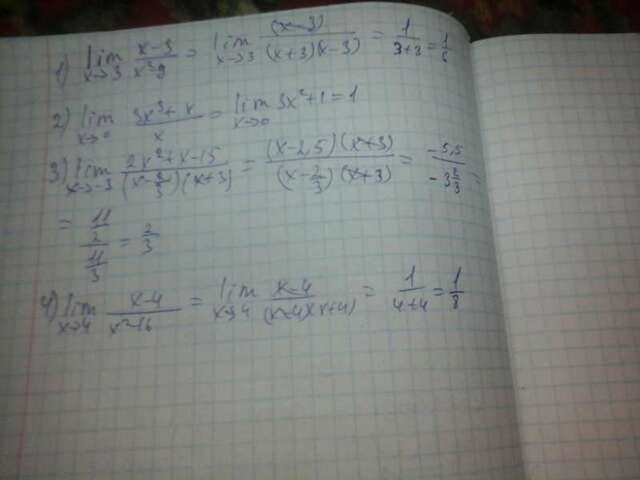 1) lim x→3 x-3/x²-9 = lim x→3 (x-3)/(x+3)(x-3) = 1/3+3 = 1/6
2) lim x→0 3x³+x/x = lim x→0 3x²+1 = 1
3) lim x→-3 2x²+x-15/(x-2/3)(x+3) = (x-2,5)(x+3)/(x-2/3)(x+3) = -5,5/-3 2/3 =
= 11/2/11/3 = 2/3
4) lim x→4 x-4/x²-16 = lim x→4 x-4/(x-4)(x+4) = 1/4+4 = 1/8